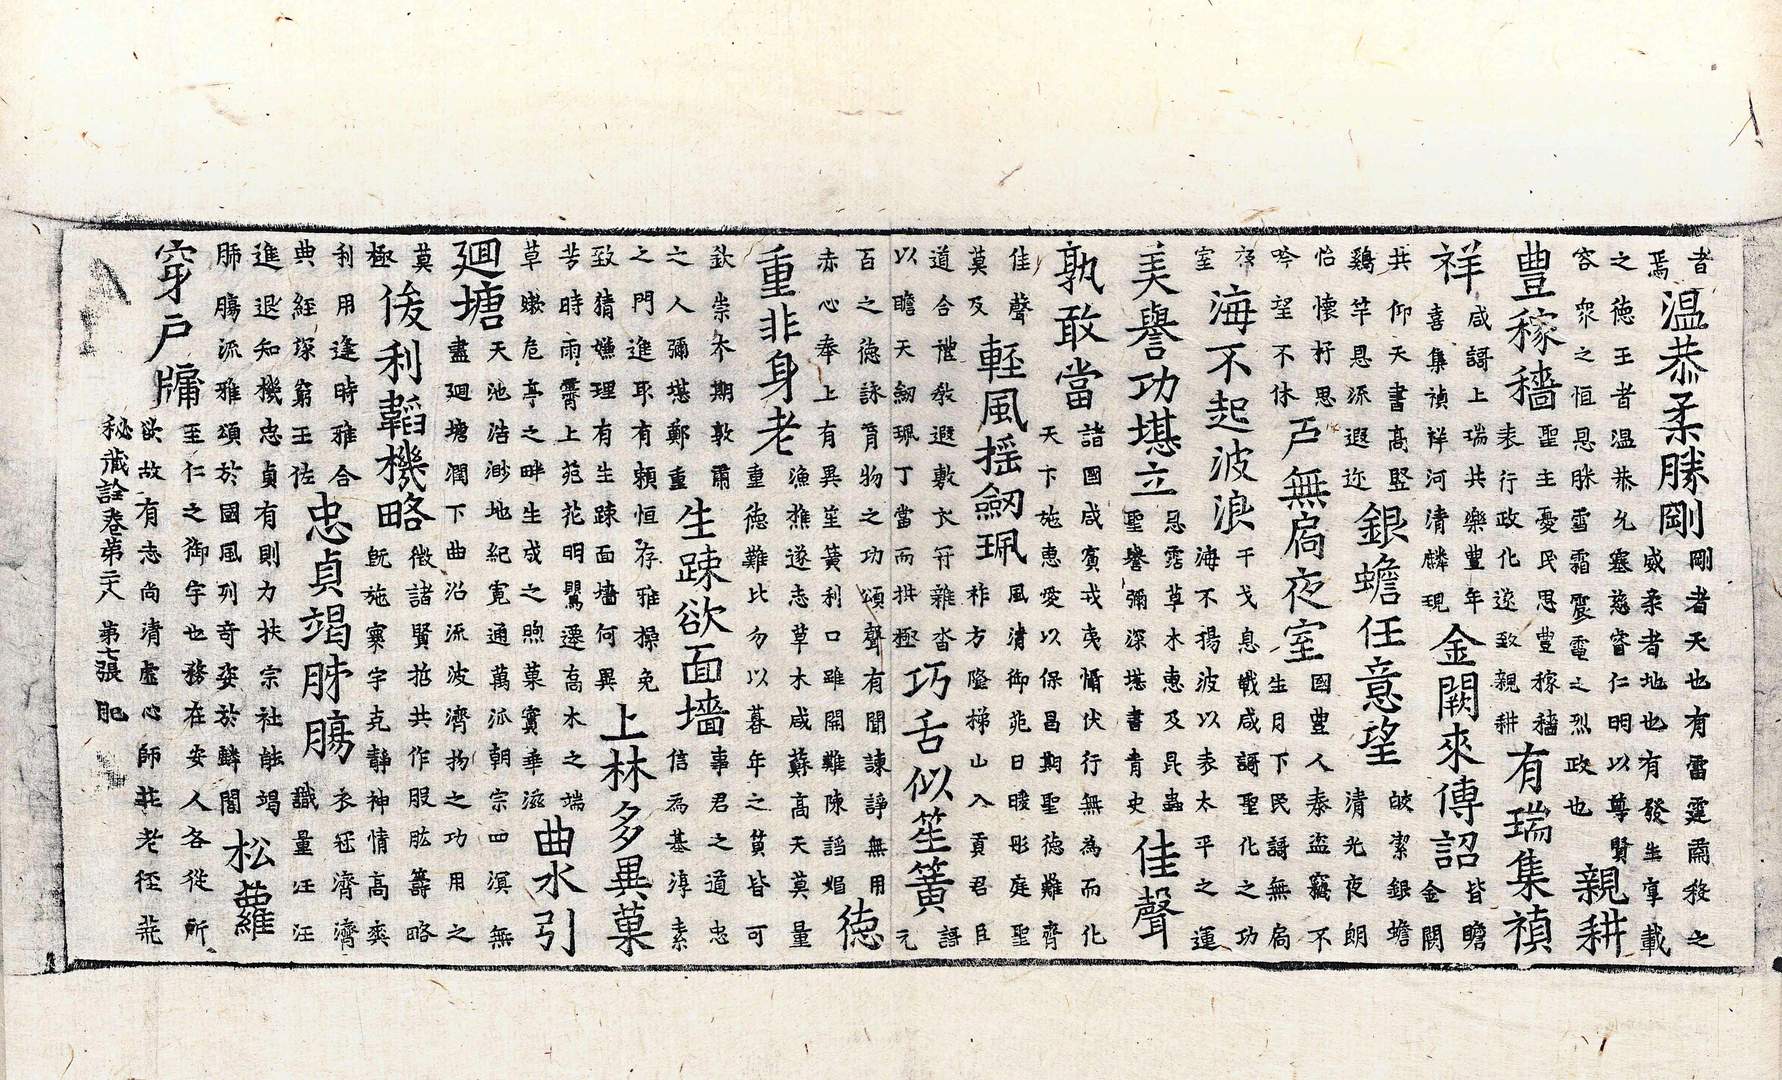 者
焉
温恭柔勝剛
剛者天也有雷霆肅殺之
威柔者地也有發生宰載
之德王者温恭允塞慈睿仁明以尊賢
容衆之恒恩勝雪霜震電之烈政也
親耕
豊稼穡
聖主憂民思豊稼穡
表行政化遂致親耕
有瑞集禎
祥
咸謌上瑞共樂豊年
喜集禎祥河清麟現
金闕來傳詔
皆瞻
金闕
共仰天書髙竪
鷄竿恩流遐迩
銀蟾任意望
皎潔銀蟾
清光夜朗
怡懷抒思
吟望不休
戸無扃夜室
國豊人泰盗竊不
生月下民謌無扃
室
海不起波浪
干戈息戰咸謌聖化之功
海不揚波以表太平之運
美譽功堪立
恩霑草木惠及昆蟲
聖譽彌深堪書青史
佳聲
孰敢當
諸國咸賓戎夷懾伏行無為而化
天下施惠愛以保昌期聖徳難齊
佳聲
莫及
輕風摇劒珮
風清御苑日暖彤庭聖
祚方隆梯山入貢君臣
道合禮敎遐敷衣冠雜沓
以瞻天劒珮丁當而拱極
巧舌似笙簧
語
元
百之徳詠育物之功頌聲有聞諫諍無用
赤心奉上有異笙簧利口雖開難陳諂媚
徳
重非身老
漁樵遂志草木咸蘇高天莫量
重徳難比勿以暮年之貧皆可
欽崇本期敦肅
之人彌堪鄭重
生踈欲面墻
事君之道忠
信為基淳素
之門進取有賴恒存雅操免
致猜嫌理有生踈面墻何異
上林多異菓
苦時雨霽上苑花明鸎遷高木之端
草嫩危亭之畔生成之煦菓實垂滋
曲水引
廻塘
天池浩渺地紀寛通萬派朝宗四溟無
盡廻塘潤下曲沿流波濟物之功用之
莫
極
俊利韜機略
徵諸賢拈共作股肱籌略
既施寰宇克静神情高爽
利用逢時雅合
典經深窮王佐
忠貞竭肺膓
衣冠濟濟
識量汪汪
進退知機忠貞有則力扶宗社能竭
肺膓流雅頌於國風列奇姿於麟閣
松蘿
穿戸牖
至仁之御宇也務在安人各從所
欲故有志尚清虛心師莊老徑荒
秘藏詮卷第二十八 第七張 肥